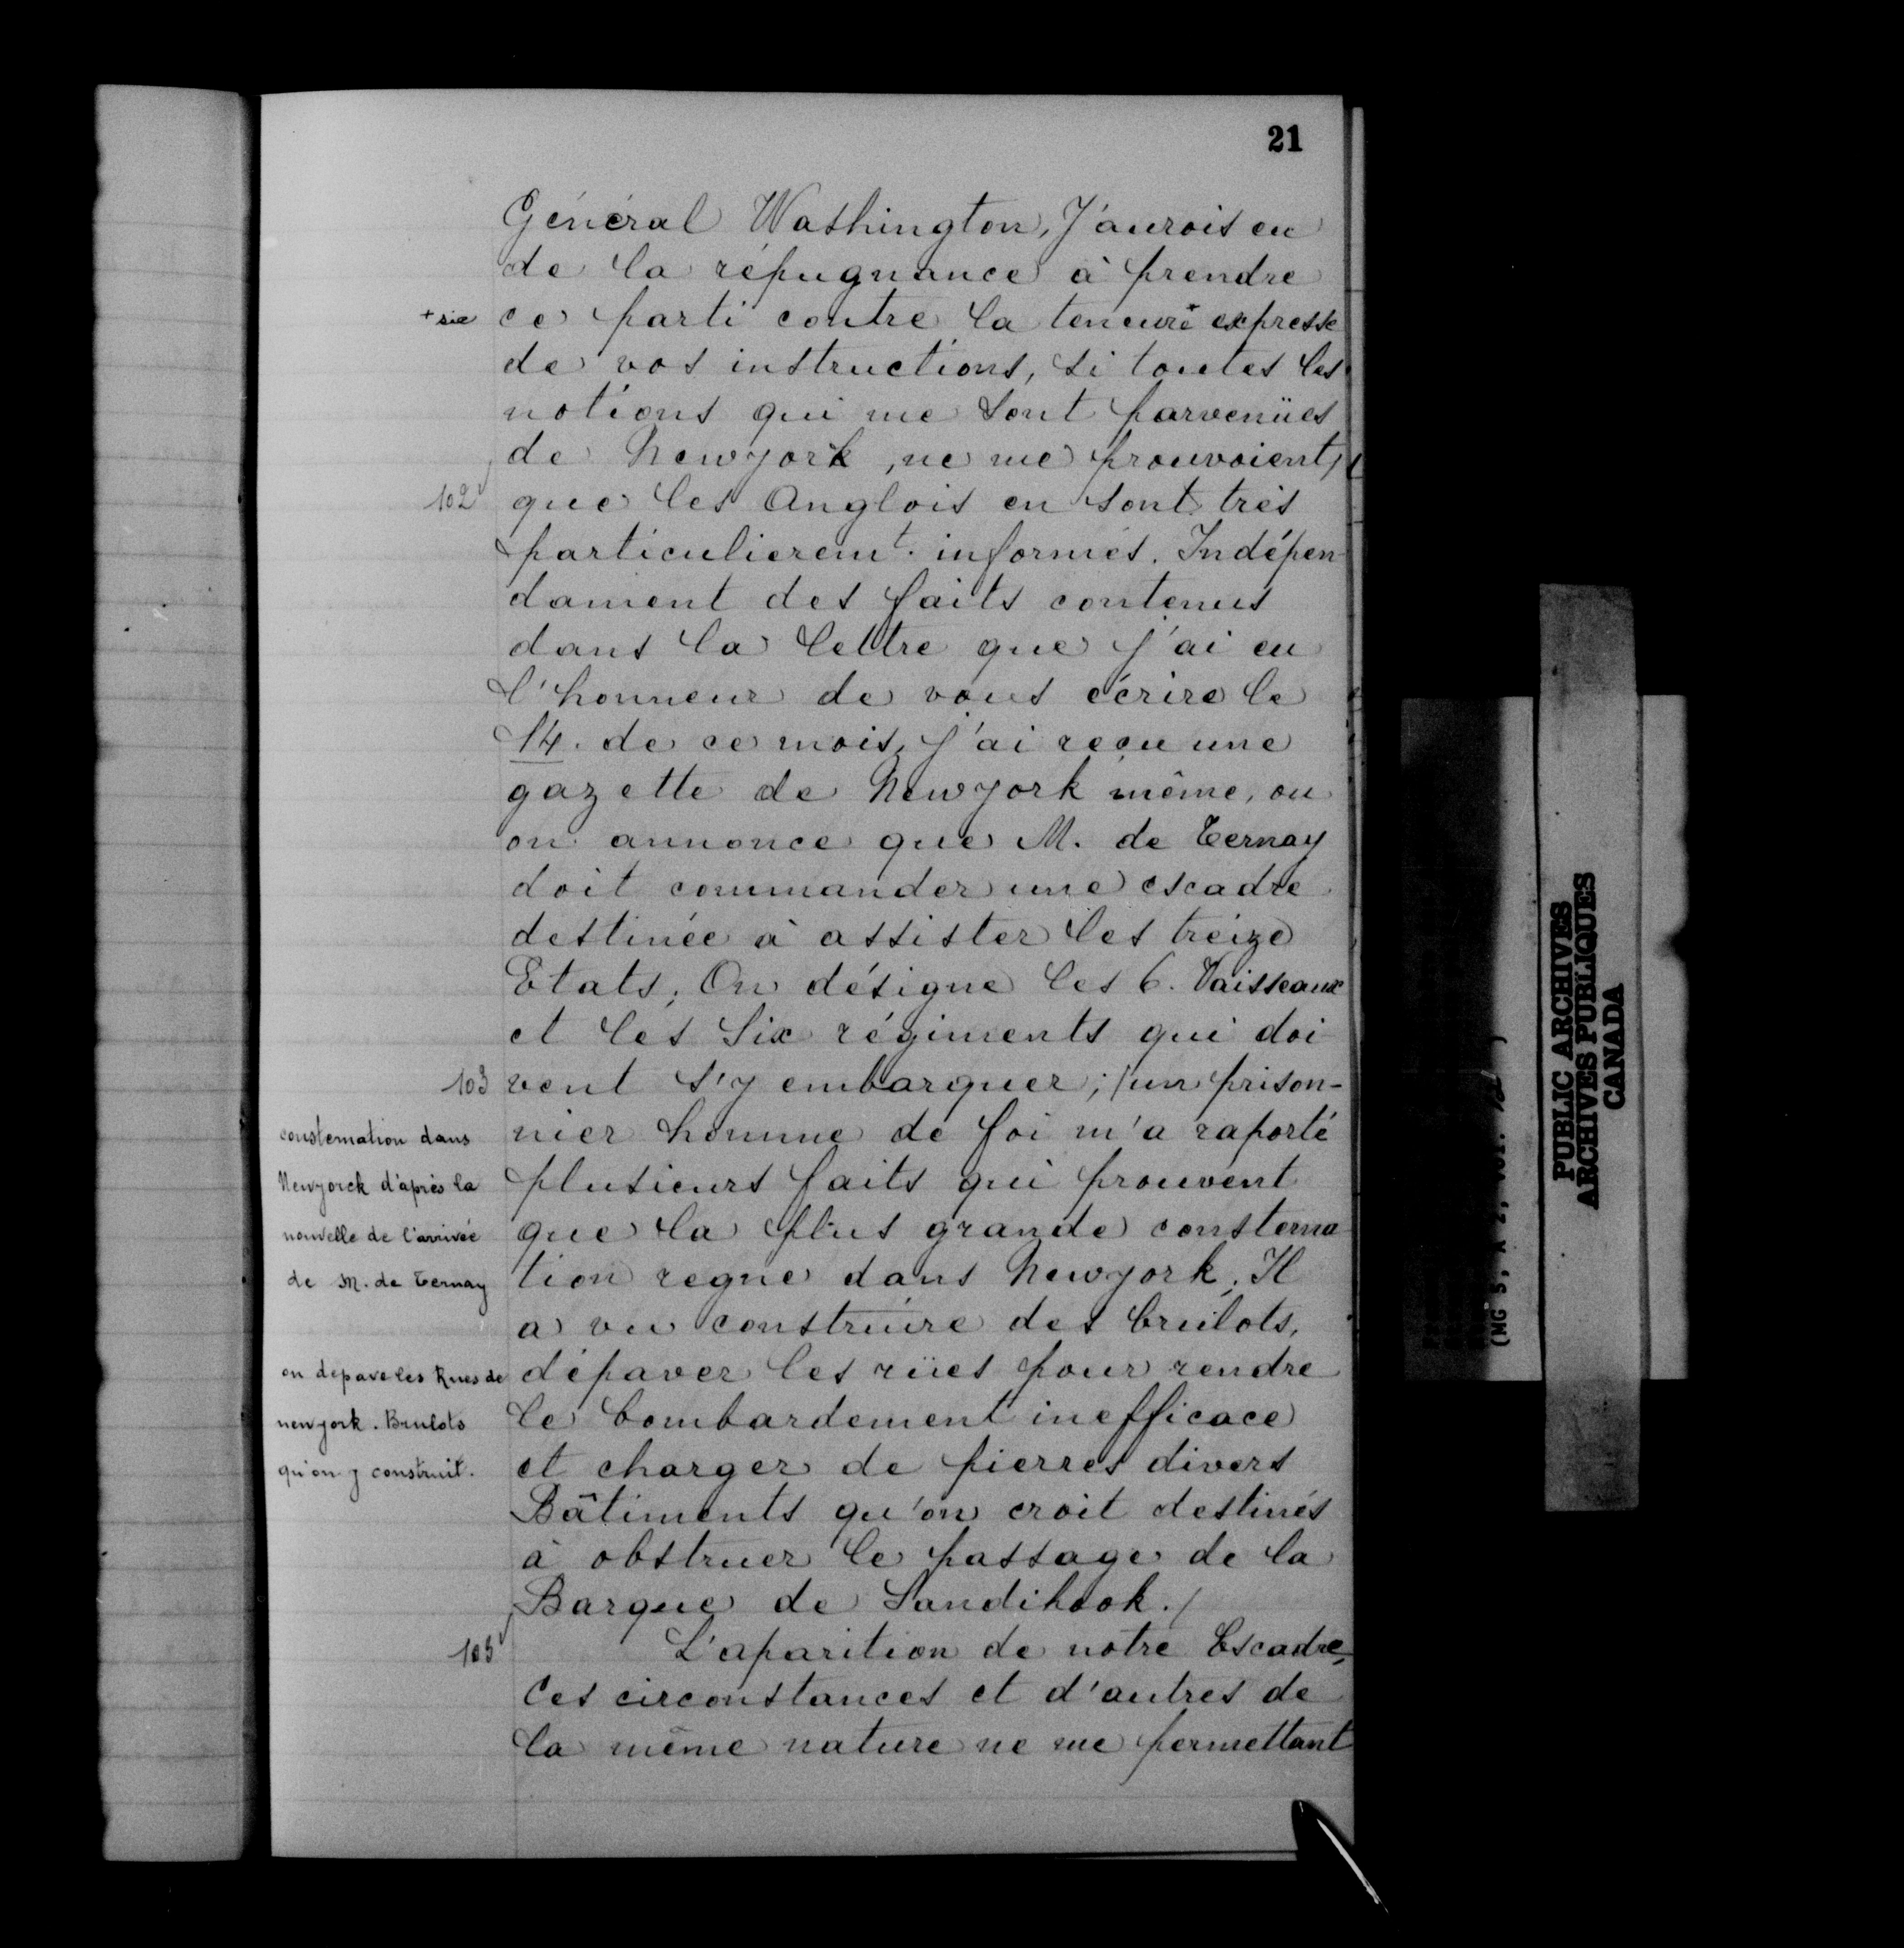 21
Général Washington, J'aurois eu
de la répugnance à prendre
+ sic ce parti contre la teneure+ expresse
de vos instructions, si toutes les
notions qui me sont parvenües
de Newyork, ne me prouvoient,
102 que les Anglois en sont très
particulierem.t informés. Indépen-
dament des faits contenus
dans la lettre que j'ai eu
l'honneur de vous écrire le
14. de ce mois, j'ai reçu une
gazette de Newyork même, ou
on annonce que M. de Ternay
doit commander une escadre
destinée à assister les treize
Etats, On désigne les 6. Vaisseaux
et les Six régiments qui doi-
103 vent s'y embarquer; / un prison-
nier homme de foi m'a raporté
plusieurs faits qui prouvent
que la plus grande consterna
tion regne dans Newyork. Il
a vu construire des brulots,
dépaver les rües pour rendre
le bombardement inefficace
et charger de pierres divers
Bâtiments qu'on croit destinés
à obstruer le passage de la
Barque de Sandihook. /
103 L'aparition de notre Escadre,
Ces circonstances et d'autres de
la même nature ne me permettant
consternation dans
Newyorck d'après la
nouvelle de l'arrivée
de M. de Ternay
on depave les Rues de
newyork. Brulots
qu'on y construit.
(MG 5, A 2, vol.
PUBLIC ARCHIVES
ARCHIVES PUBLIQUES
CANADA